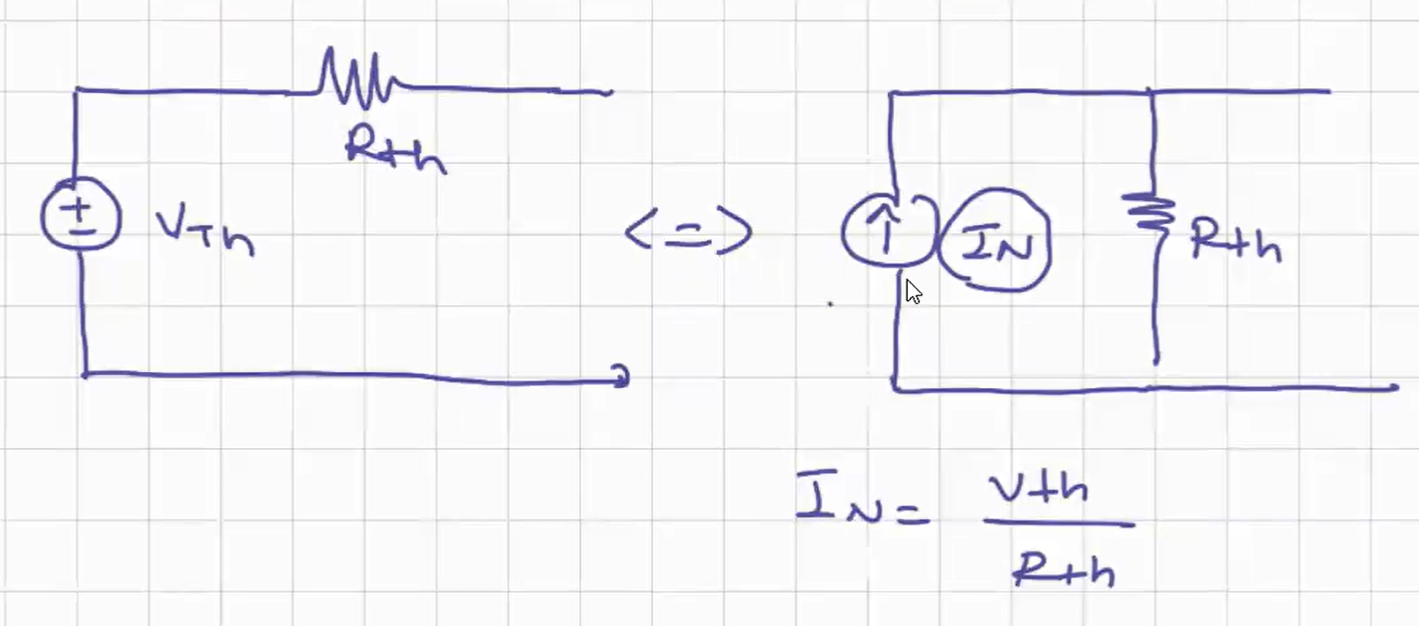 Rth
+
-
VTh
<=>
↑
IN
Rth
IN = Vth
Rth